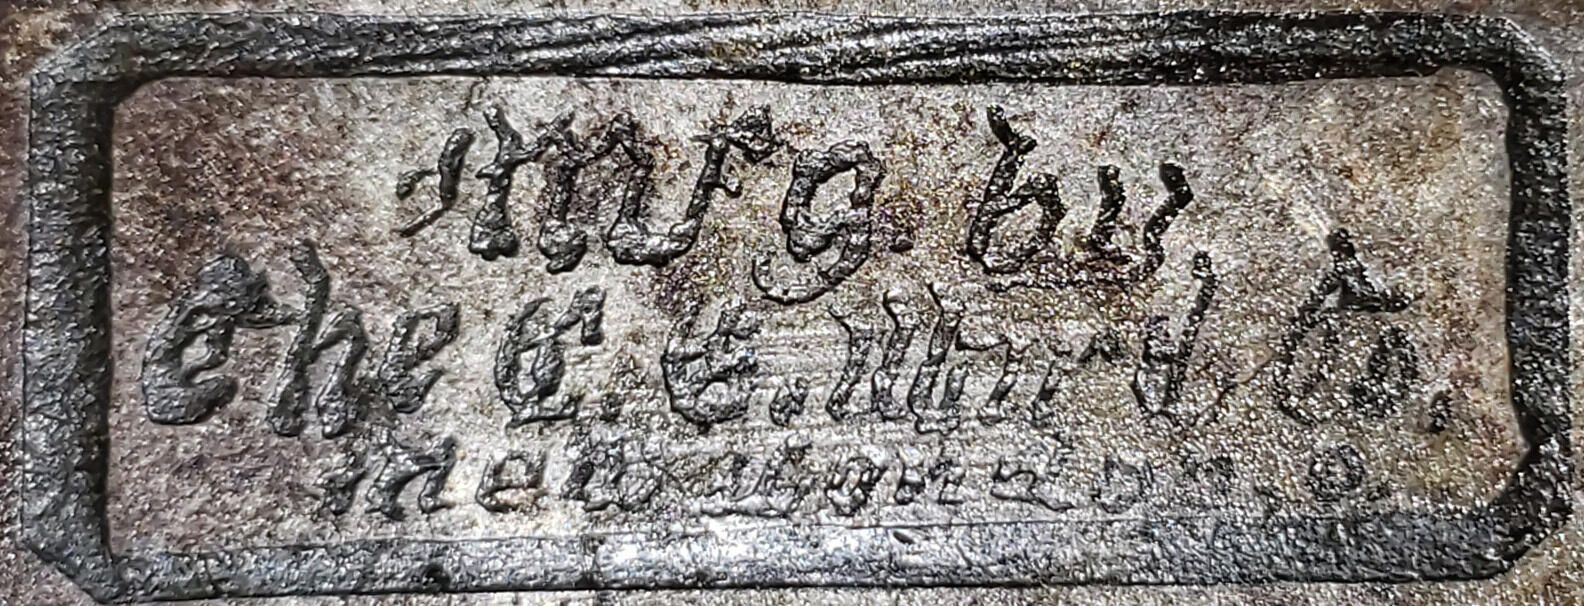 Mfg. by
The C. E. Ward Co.
New London, O.